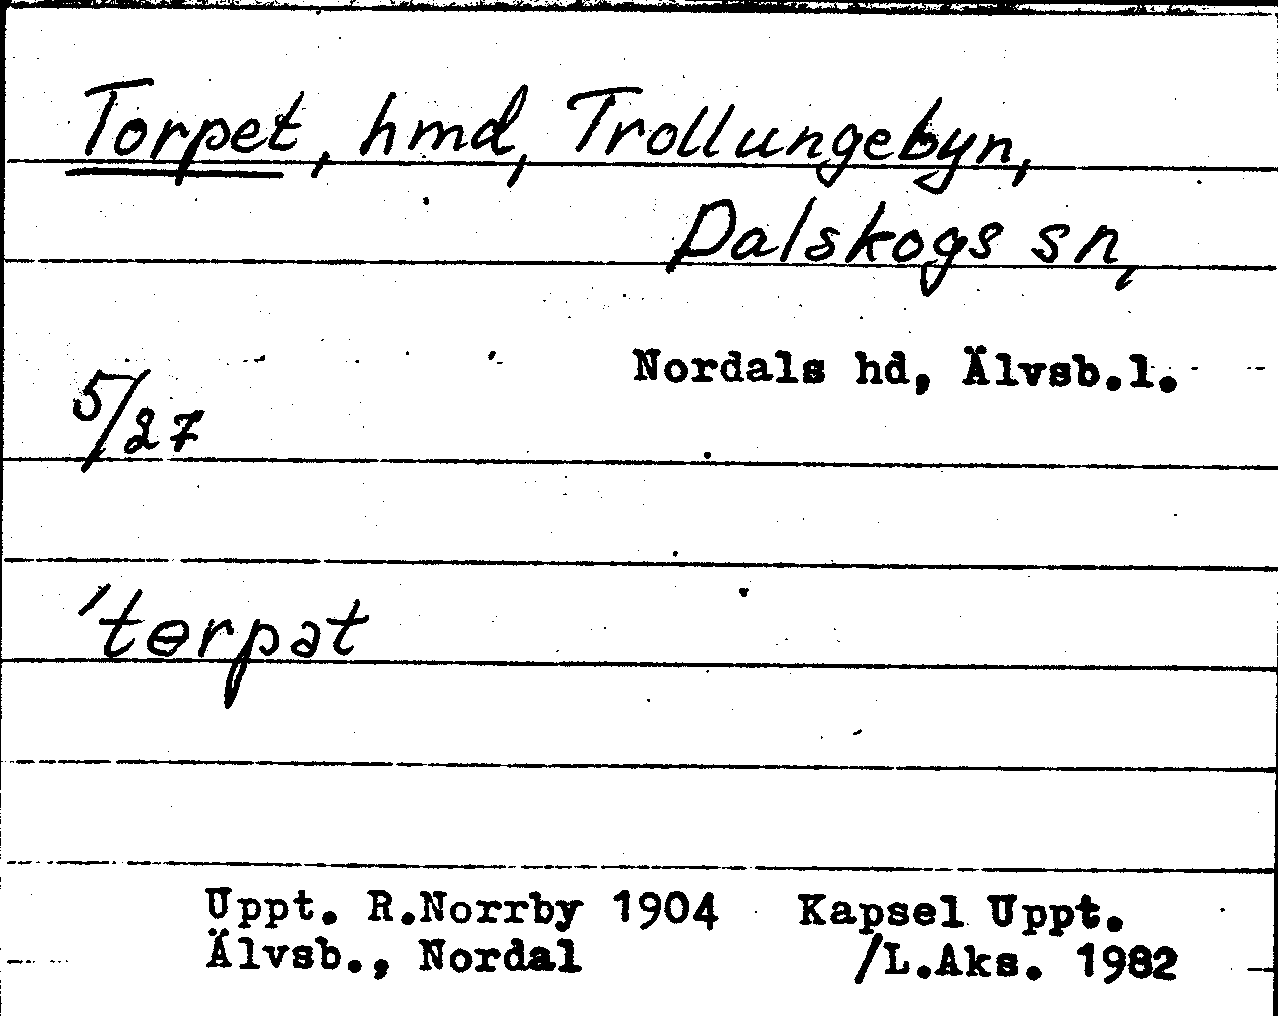 Torpet, hmd, Trollungebyn,
Dalskogs sn,
Nordals hd, Älvsb.l.
5/27
'tɵrpat
Uppt. R.Norrby 1904 Kapsel Uppt.
Älvsb., Nordal /L.Aks. 1982